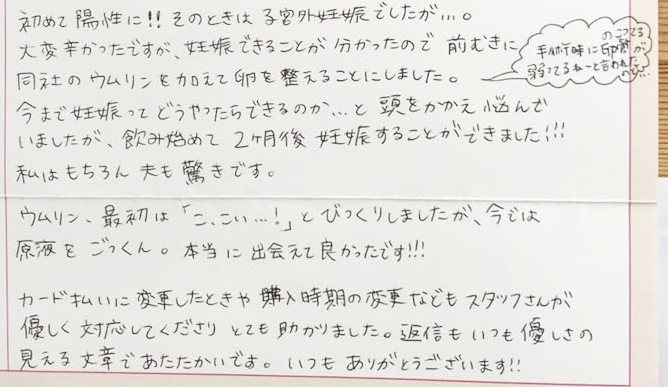 初めて陽性に!! そのときは子宮外妊娠でしたが…。
大変辛かったですが、妊娠できることが分かったので 前むきに
のこってる
手術時に卵管が
弱ってるねーと言われた
のち…
同社の ウムリンを加えて卵を整えることにしました。
今まで妊娠って どうやったらできるのか…と 頭をかかえ悩んで
いましたが、飲み始めて 2ヶ月後 妊娠することができました!!!
私はもちろん 夫も驚きです。
ウムリン、最初は「こ、こい…!」と びっくりしましたが、今では
原液を ごっくん。本当に出会えて良かったです!!!
カード払いに変更したときや 購入時期の変更なども スタッフさんが
優しく 対応してくださり とても助かりました。返信も いつも優しさの
見える文章であたたかいです。いつも ありがとうございます!!